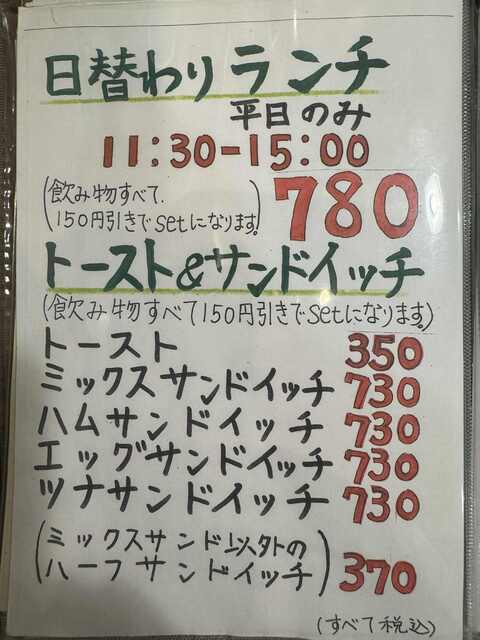 日替わりランチ
平日のみ
11:30-15:00
(飲み物すべて、
150円引きでsetになります。)
780
トースト&サンドイッチ
(飲み物すべて150円引きでsetになります。)
トースト 350
ミックスサンドイッチ 730
ハムサンドイッチ 730
エッグサンドイッチ 730
ツナサンドイッチ 730
(ミックスサンド以外の
ハーフサンドイッチ) 370
(すべて税込)